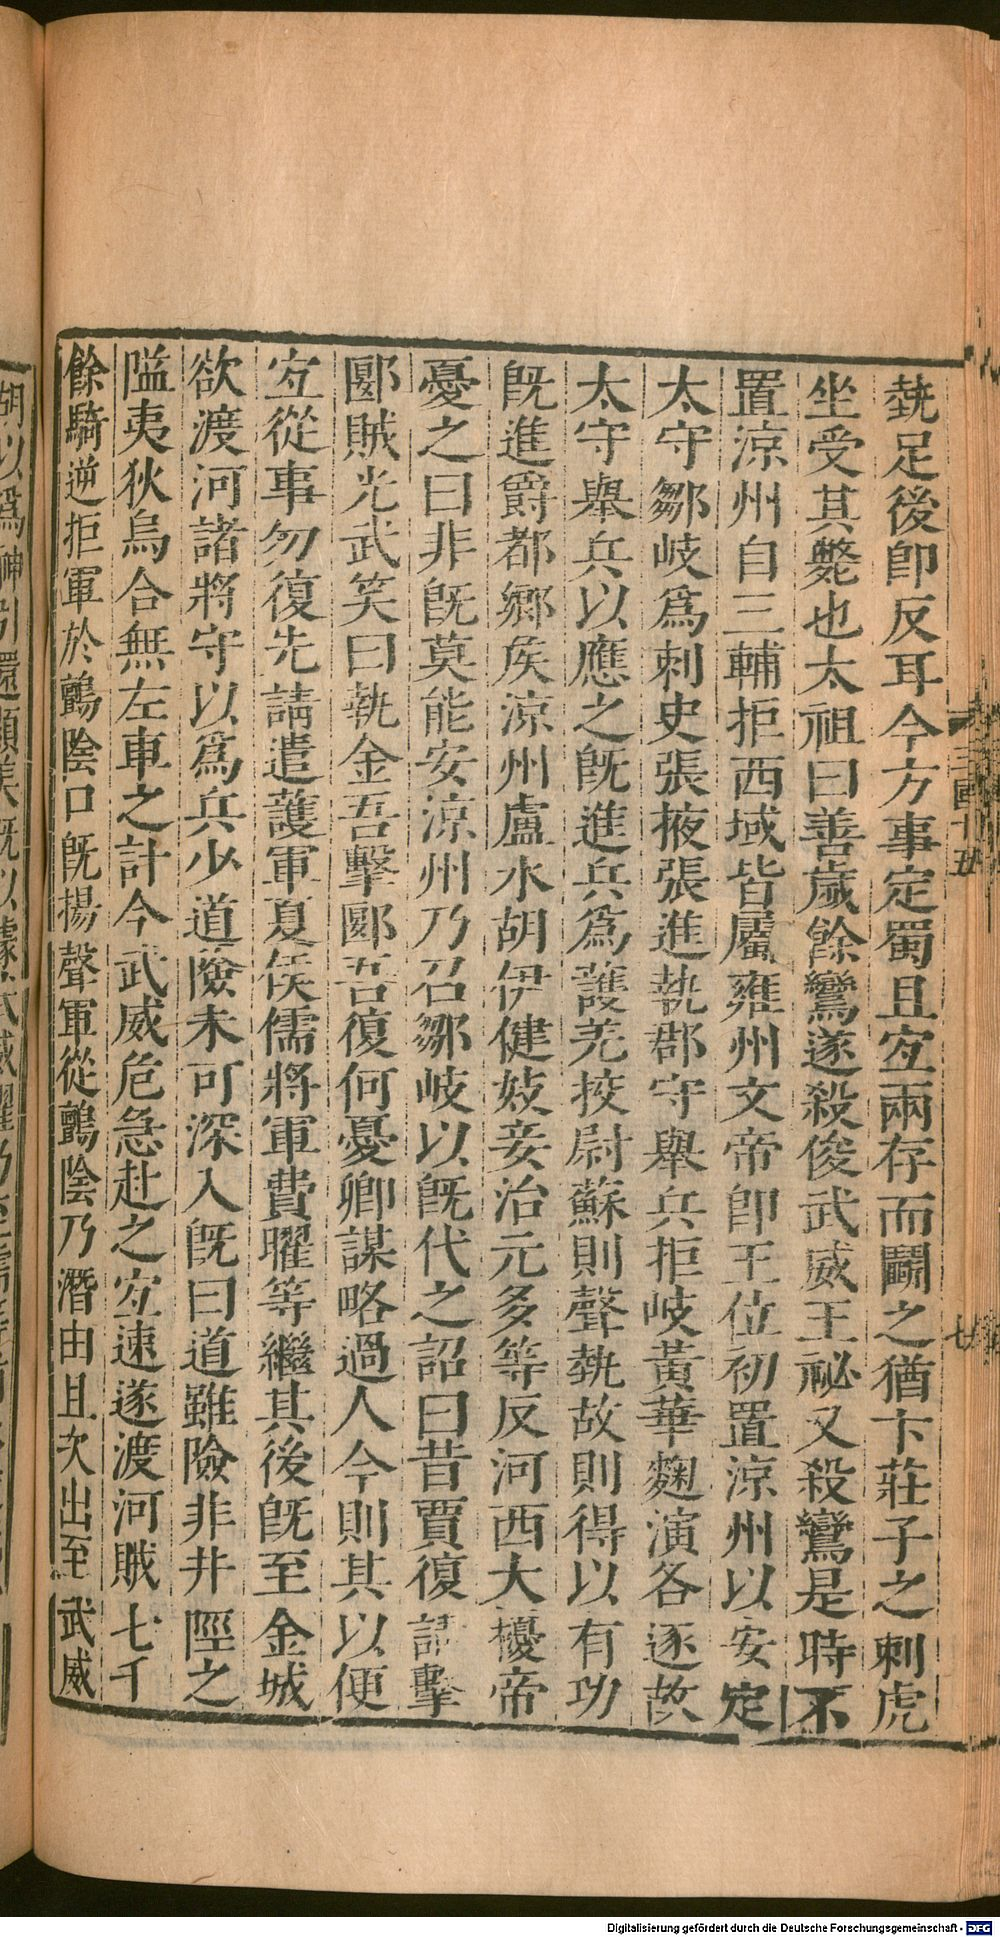 埶足後卽反耳今方事定蜀且宐兩存而鬭之猶卞莊子之刺虎
坐受其斃也太祖曰善歲餘鸞遂殺俊武威王祕又殺鸞是時不
置涼州自三輔拒西域皆屬雍州文帝卽王位初置涼州以安定
太守鄒岐爲刺史張掖張進執郡守舉兵拒岐黃華麴演各逐故
太守舉兵以應之旣進兵爲護羌挍尉蘇則聲埶故則得以有功
旣進爵都鄉矦涼州盧水胡伊健妓妾治元多等反河西大擾帝
憂之曰非旣莫能安涼州乃召鄒岐以旣代之詔曰昔賈復請擊
郾賊光武笑曰執金吾擊郾吾復何憂卿謀略過人今則其以便
宐從事勿復先請遣護軍夏矦儒將軍費曜等繼其後旣至金城
欲渡河諸將守以爲兵少道險未可深入旣曰道雖險非井陘之
隘夷狄烏合無左車之計今武威危急赴之宐速遂渡河賊七千
餘騎逆拒軍於鸇陰口旣揚聲軍從鸇陰乃潛由且次出至武威
三國十五
七
胡以爲神引還顯美旣以據武威曜乃至儒等
Digitalisierung gefördert durch die Deutsche Forschungsgemeinschaft - DFG